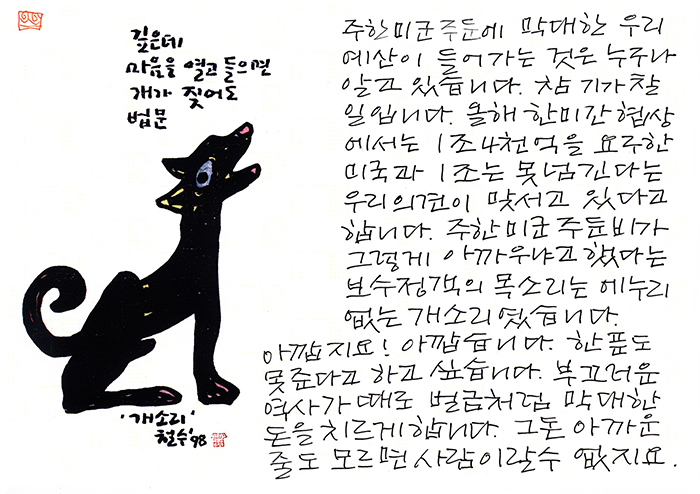 깊은데
마음을 열고 들으면
개가 짖어도
법문
'개소리'
철수 '98
주한미군 주둔에 막대한 우리
예산이 들어가는 것은 누구나
알고 있습니다. 참 기가찰
일입니다. 올해 한미간 협상
에서는 1조4천억을 요구한
미국과 1조는 못넘긴다는
우리의견이 맞서고 있다고
합니다. 주한미군 주둔비가
그렇게 아까우냐고 했다는
보수정객의 목소리는 에누리
없는 개소리였습니다.
아깝지요! 아깝습니다. 한푼도
못준다고 하고 싶습니다. 부끄러운
역사가 때로 벌금처럼 막대한
돈을 치르게 합니다. 그돈 아까운
줄도 모르면 사람이랄수 없지요.